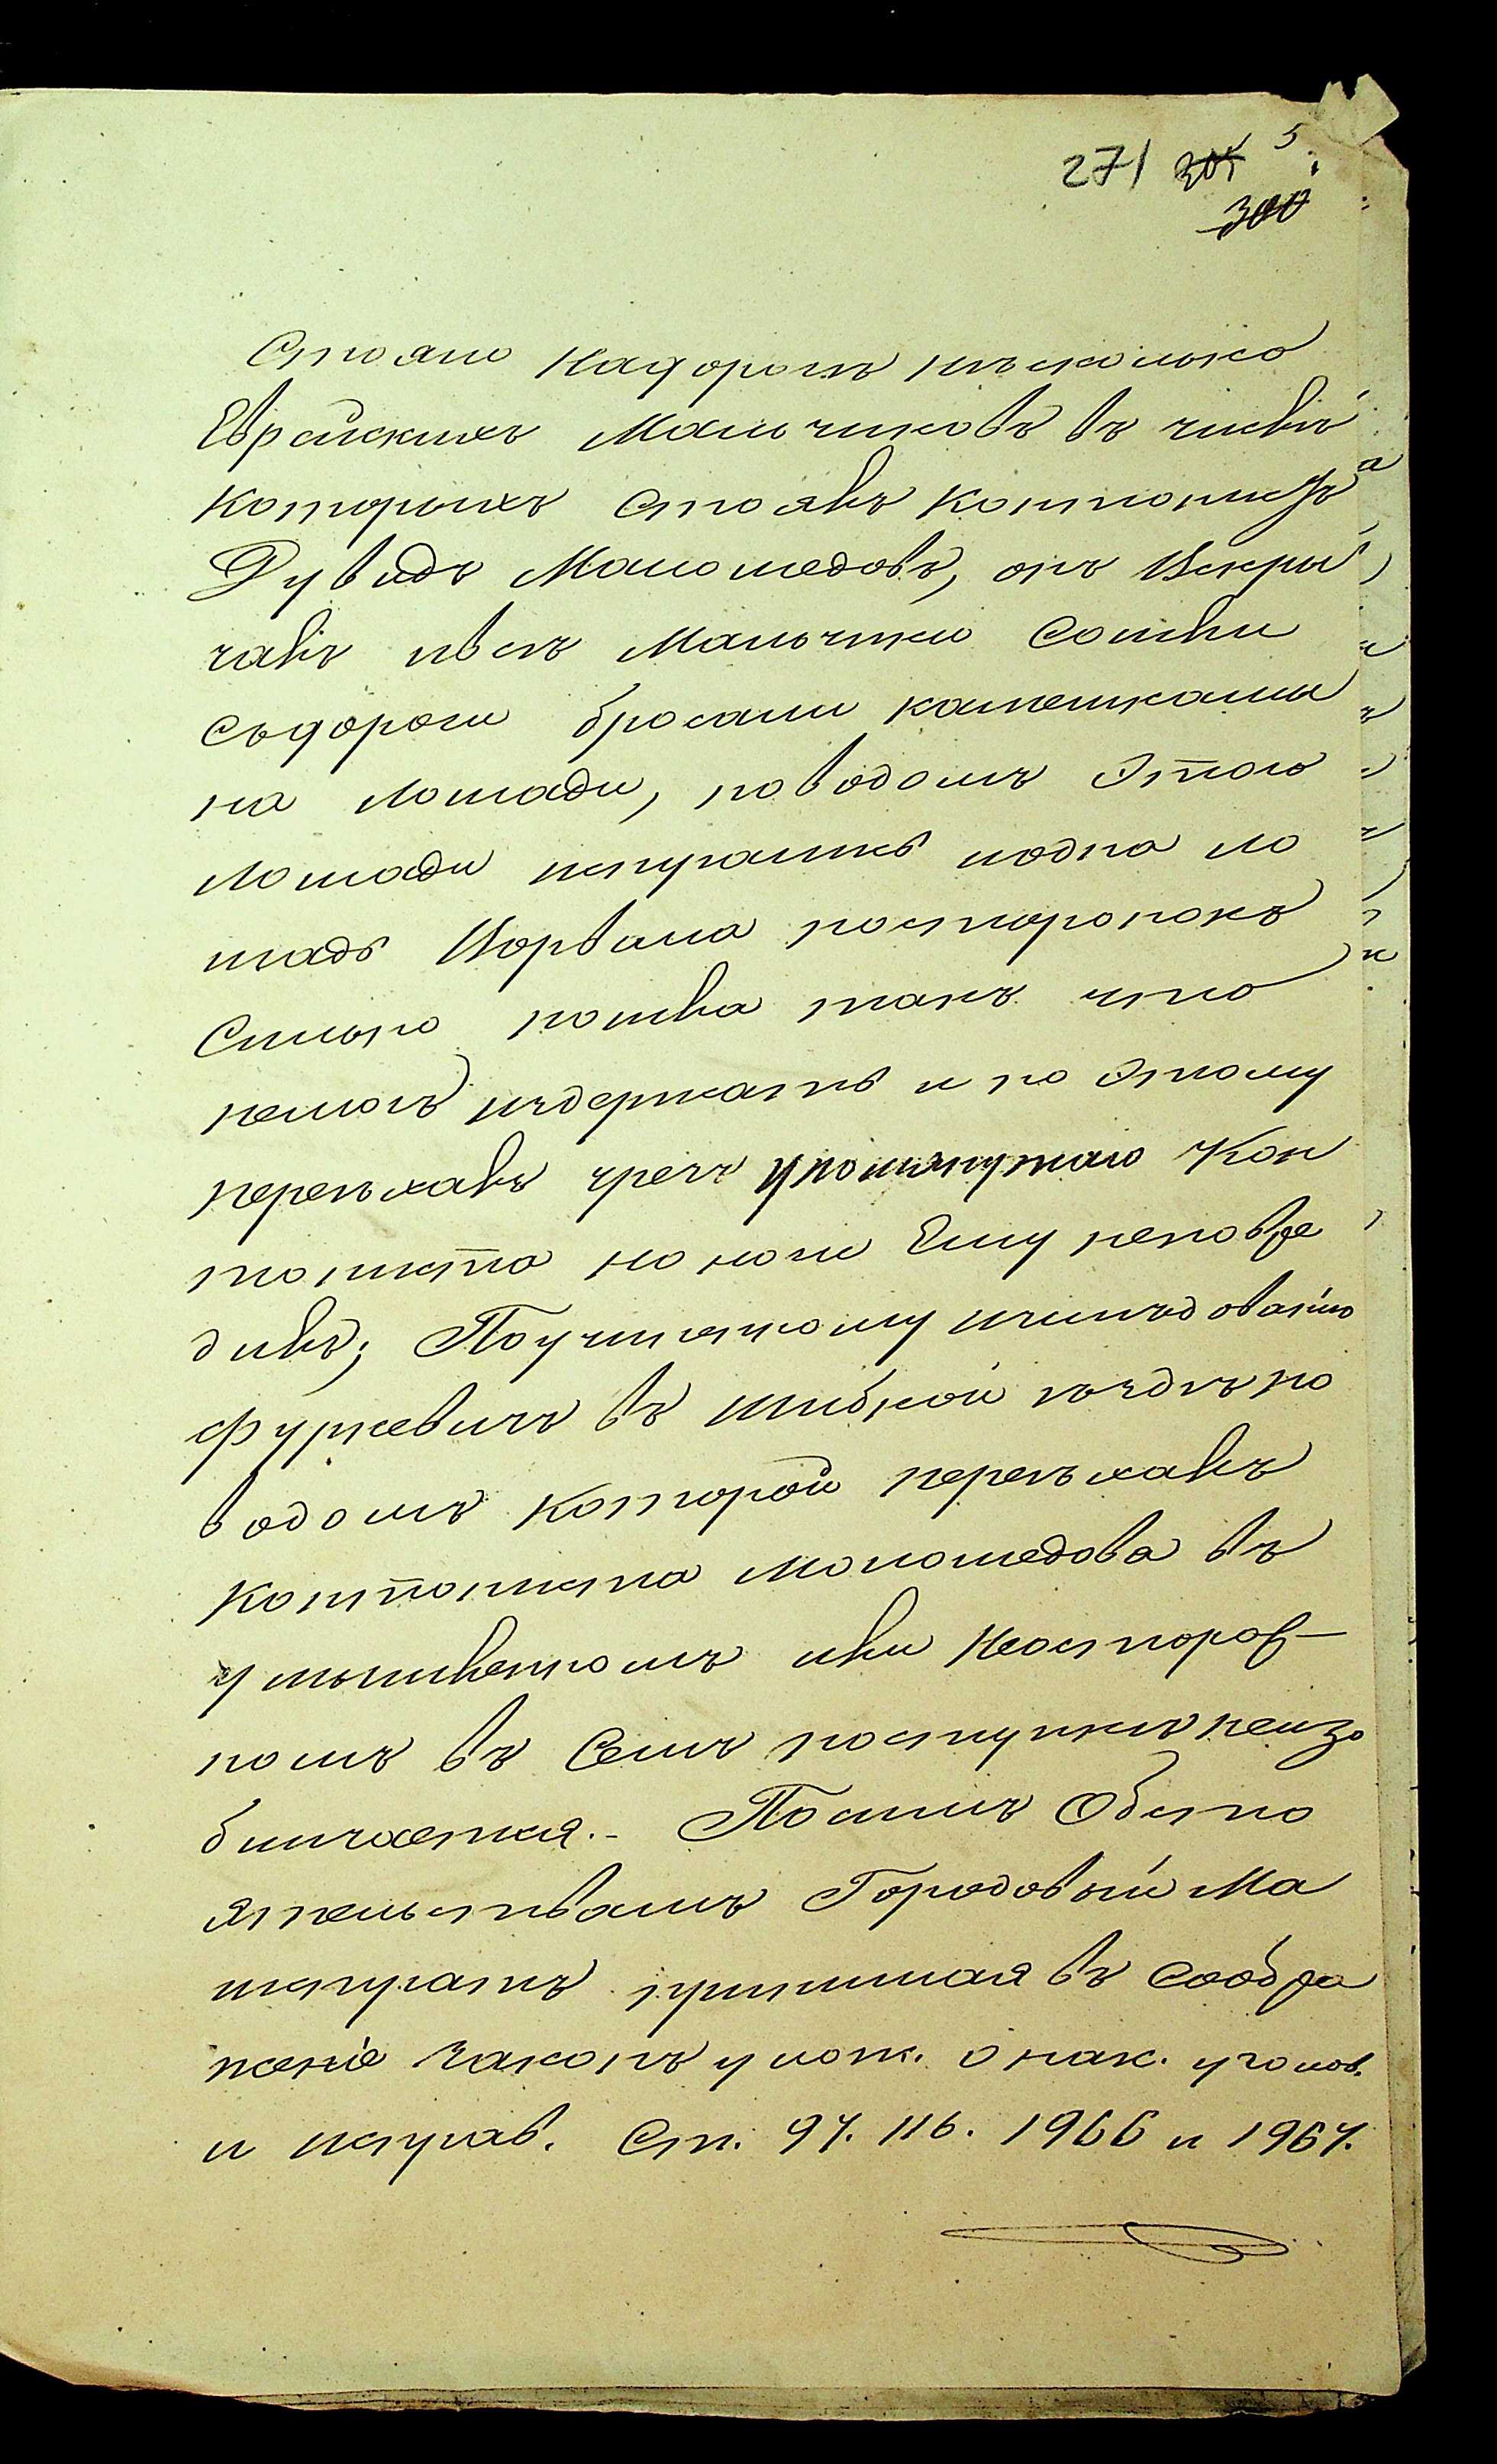 271 305 5
300
Стояло надорогѣ нѣсколько
Еврейскихъ Мальчиковъ въ числѣ
которыхъ Стоялъ контонистъ
Дувидъ Маломедовъ, онъ Искри
чалъ ивсѣ Мальчики Сошли
съдороги бросали камешками
на лошади, поводомъ этого
лошади испугались иодна ло
шадь Порвала посторонокъ
Сильно понесла такъ что
немогъ издержать и по этому
переѣхалъ чрезъ упомянутаго Кон
тониста но ноги Ему неповре
дилъ; Поучиненному изслѣдованію
Фуркевичъ въ шибкой ѣздѣ по
водомъ которой переѣхалъ
контониста Маломедова въ
умышленномъ или Неосторож-
номъ въ Семъ поступкѣ неизо
бличается.- Посимъ Обсто
ятельствамъ Городовый Ма
гистратъ принимая въ Сообра
женіе законъ улож. о нак. уголов.
и исправ. Ст. 97. 116. 1966 и 1967.